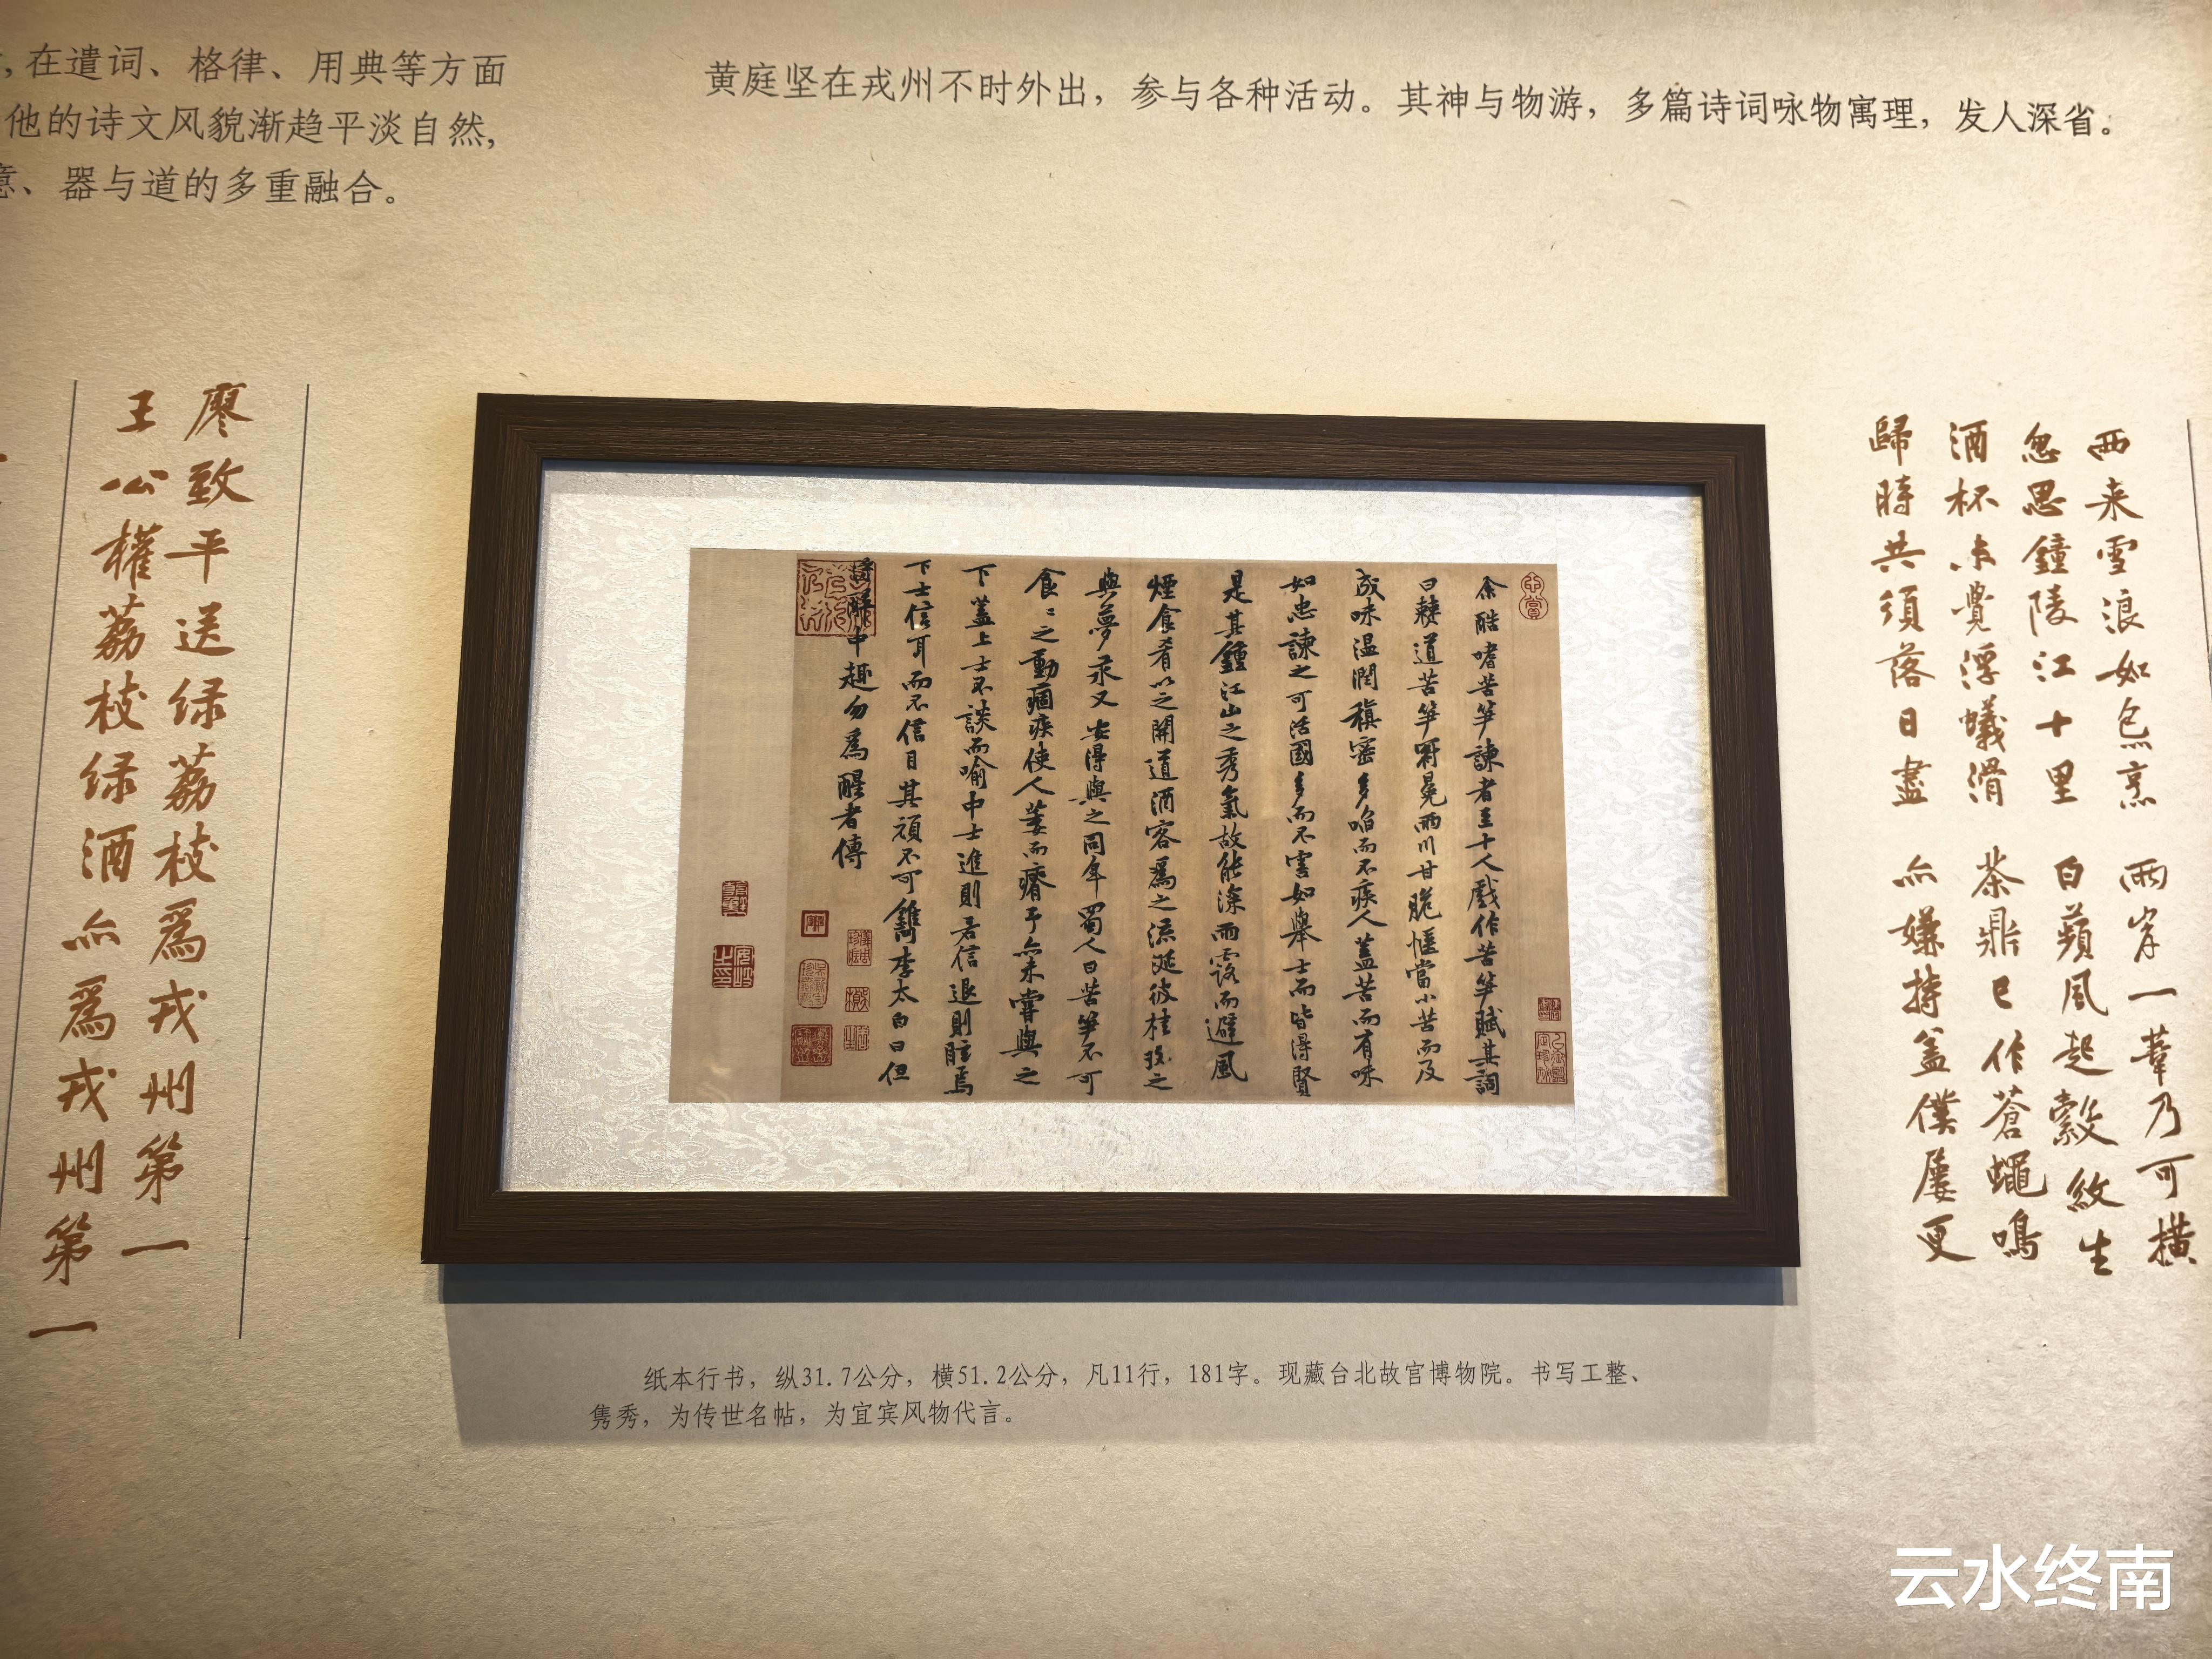 ，在遣词、格律、用典等方面
他的诗文风貌渐趋平淡自然，
意、器与道的多重融合。
黄庭坚在戎州不时外出，参与各种活动。其神与物游，多篇诗词咏物寓理，发人深省。
西来雪浪如炰烹 两岸一苇乃可横
忽思鐘陵江十里 白蘋風起縠紋生
酒杯未覺浮蟻滑 茶鼎已作蒼蠅鳴
歸時共須落日盡 亦嫌持蓋僕屢更
余酷嗜苦笋諫者至十人戲作苦笋賦其詞
曰僰道苦笋冠冕兩川甘脆愜當小苦而及
成味温潤稹密多啗而不疾人蓋苦而有味
如忠諫之可活國多而不害如舉士而皆得賢
是其鍾江山之秀氣故能深雨露而避風
煙食肴以之開道酒客爲之流涎彼桂玫之
與夢汞又安得與之同年蜀人曰苦笋不可
食〻之動痼疾使人萎而瘠予亦未嘗與之
下蓋上士不談而喻中士進則若信退則眩焉
下士信耳而不信目其頑不可鐫李太白曰但
得醉中趣勿爲醒者傳
廖致平送绿荔枝爲戎州第一
王公權荔枝绿酒亦爲戎州第一
纸本行书，纵31.7公分，横51.2公分，凡11行，181字。现藏台北故宫博物院。书写工整、
隽秀，为传世名帖，为宜宾风物代言。
云水终南